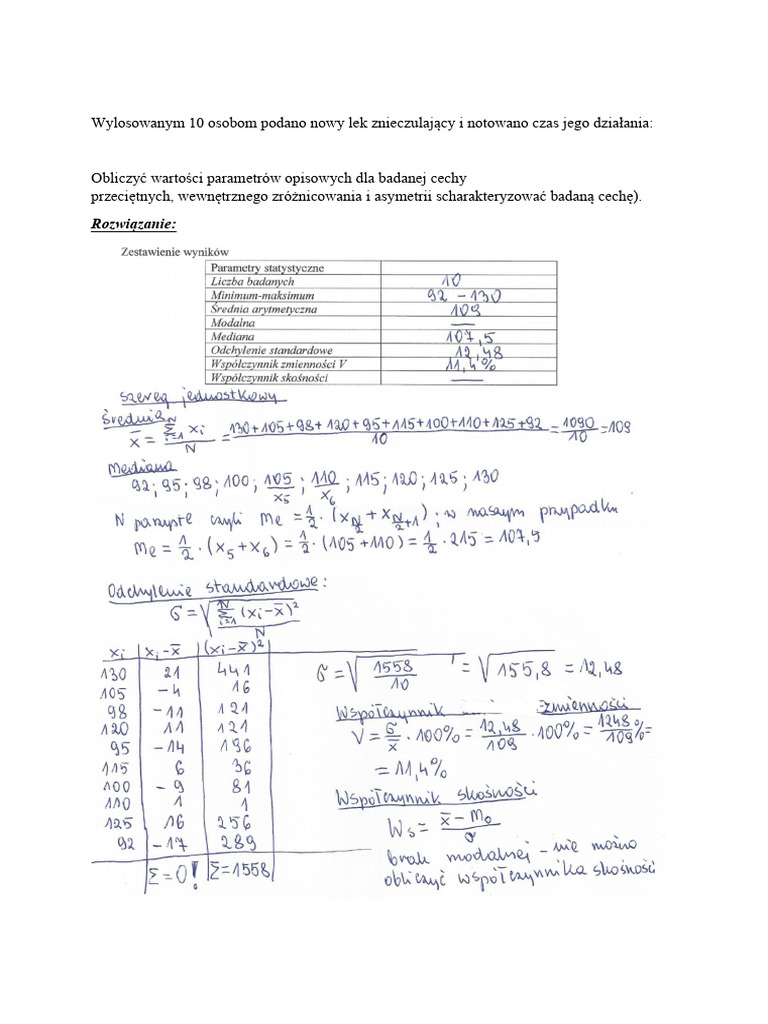 Wylosowanym 10 osobom podano nowy lek znieczulający i notowano czas jego działania:
Obliczyć wartości parametrów opisowych dla badanej cechy
przeciętnych, wewnętrznego zróżnicowania i asymetrii scharakteryzować badaną cechę).
Rozwiązanie:
Zestawienie wyników
Parametry statystyczne
Liczba badanych 10
Minimum-maksimum 92 - 130
Średnia arytmetyczna 109
Modalna —
Mediana 107,5
Odchylenie standardowe 12,48
Współczynnik zmienności V 11,4%
Współczynnik skośności —
szereg jednostkowy
Średnia
x̄ = Σ_{i=1}^{N} xi / N = 130+105+98+120+95+115+100+110+125+92 / 10 = 1090/10 = 109
Mediana
92; 95; 98; 100; 105; 110; 115; 120; 125; 130
x5 x6
N parzyste czyli Me = 1/2 · (x_{N/2} + x_{N/2+1}); w naszym przypadku
Me = 1/2 · (x5 + x6) = 1/2 · (105 + 110) = 1/2 · 215 = 107,5
Odchylenie standardowe:
σ = √(Σ_{i=1}^{N} (xi - x̄)² / N)
xi | xi - x̄ | (xi - x̄)²
130 21 441
105 -4 16
98 -11 121
120 11 121
95 -14 196
115 6 36
100 -9 81
110 1 1
125 16 256
92 -17 289
Σ=0! Σ=1558
σ = √(1558/10) = √155,8 = 12,48
Współczynnik zmienności
V = σ/x̄ · 100% = 12,48/109 · 100% = 1248%/109% =
= 11,4%
Współczynnik skośności
Ws = x̄ - Mo / σ
brak modalnej - nie można
obliczyć współczynnika skośność